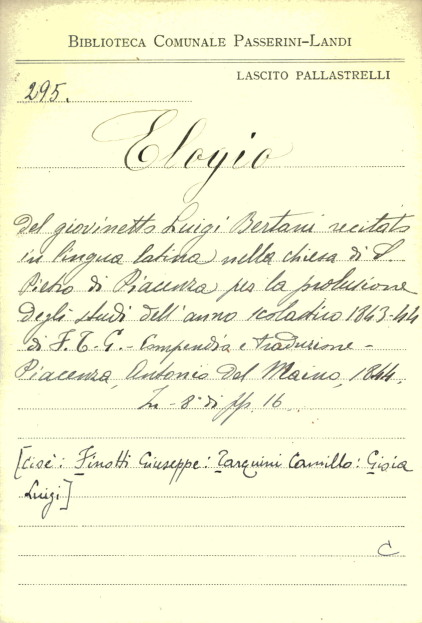 BIBLIOTECA COMUNALE PASSERINI-LANDI
LASCITO PALLASTRELLI
295.
Elogio
del giovinetto Luigi Bertani recitato
in lingua latina nella chiesa di S.
Pietro di Piacenza per la prolusione
degli studi dell'anno scolastico 1843-44
di F. T. G. - Compendia e traduzione -
Piacenza, Antonio Del Maino, 1844.
In-8° di pp. 16
[cioè: Finotti Giuseppe: Tarquini Camillo: Gioia
Luigi]
C